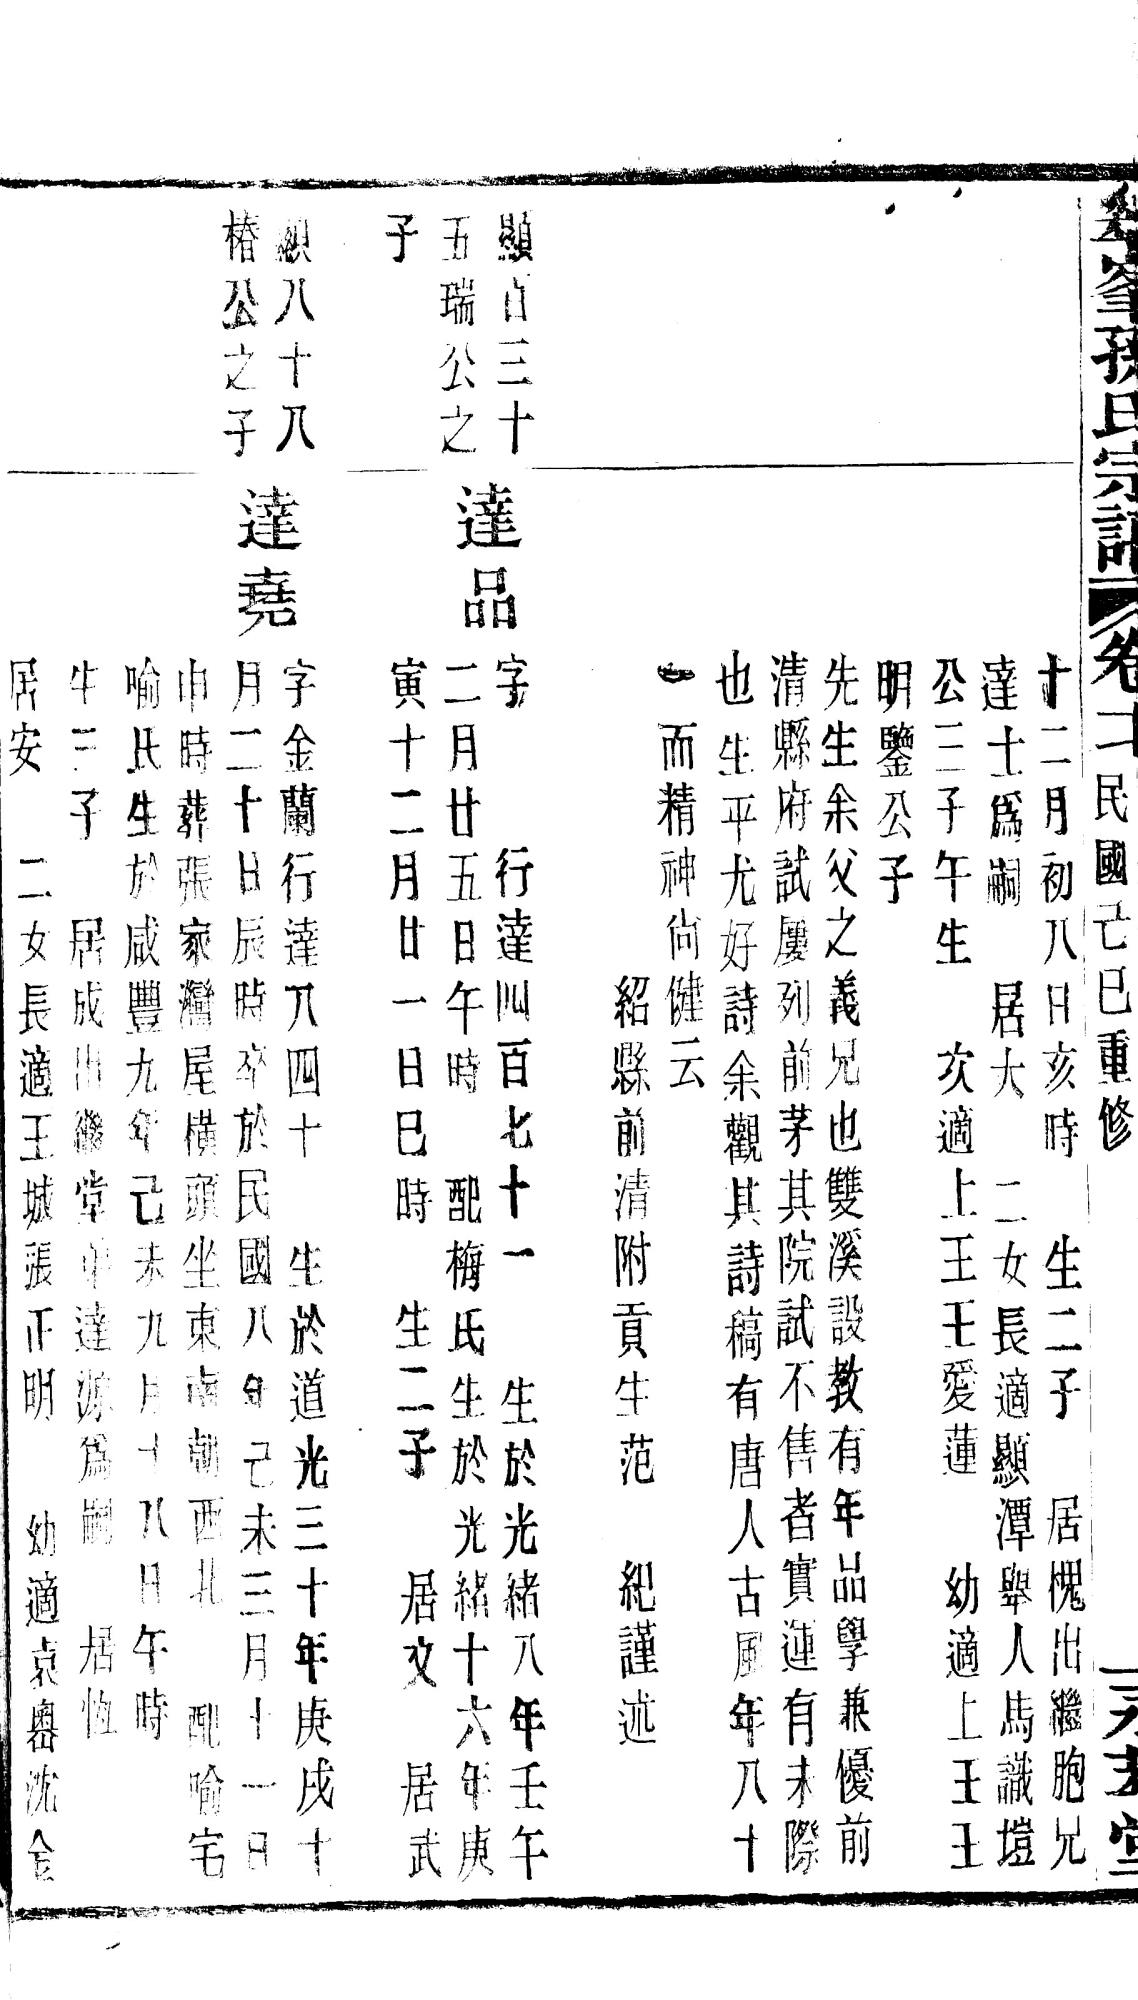 孫氏宗譜 卷十 民國己巳重修 永 堂
十二月初八日亥時 生二子 居槐出繼胞兄
達士爲嗣 居大 二女長適顯潭舉人馬識塏
公三子午生 次適上王王愛蓮 幼適上王王
明鑒公子
先生余父之義兄也雙溪設教有年品學兼優前
清縣府試屢列前茅其院試不售者實運有未際
也生平尤好詩余觀其詩稿有唐人古風年八十
而精神尙健云
紹縣前清附貢生范 紀謹述
顯百三十
五瑞公之
子
達品
字 行達四百七十一 生於光緒八年壬午
二月廿五日午時 配梅氏生於光緒十六年庚
寅十二月廿一日巳時 生二子 居文 居武
顯八十八
椿公之子
達堯
字金蘭行達八四十 生於道光三十年庚戌十
月二十日辰時卒於民國八年己未三月十一日
申時葬張家灣屋橫頭坐東南朝西北 配喻宅
喻氏生於咸豐九年己未九月十八日午時
生三子 居成出繼堂弟達源爲嗣 居恆
居安 二女長適王城張正明 幼適袁岙沈金